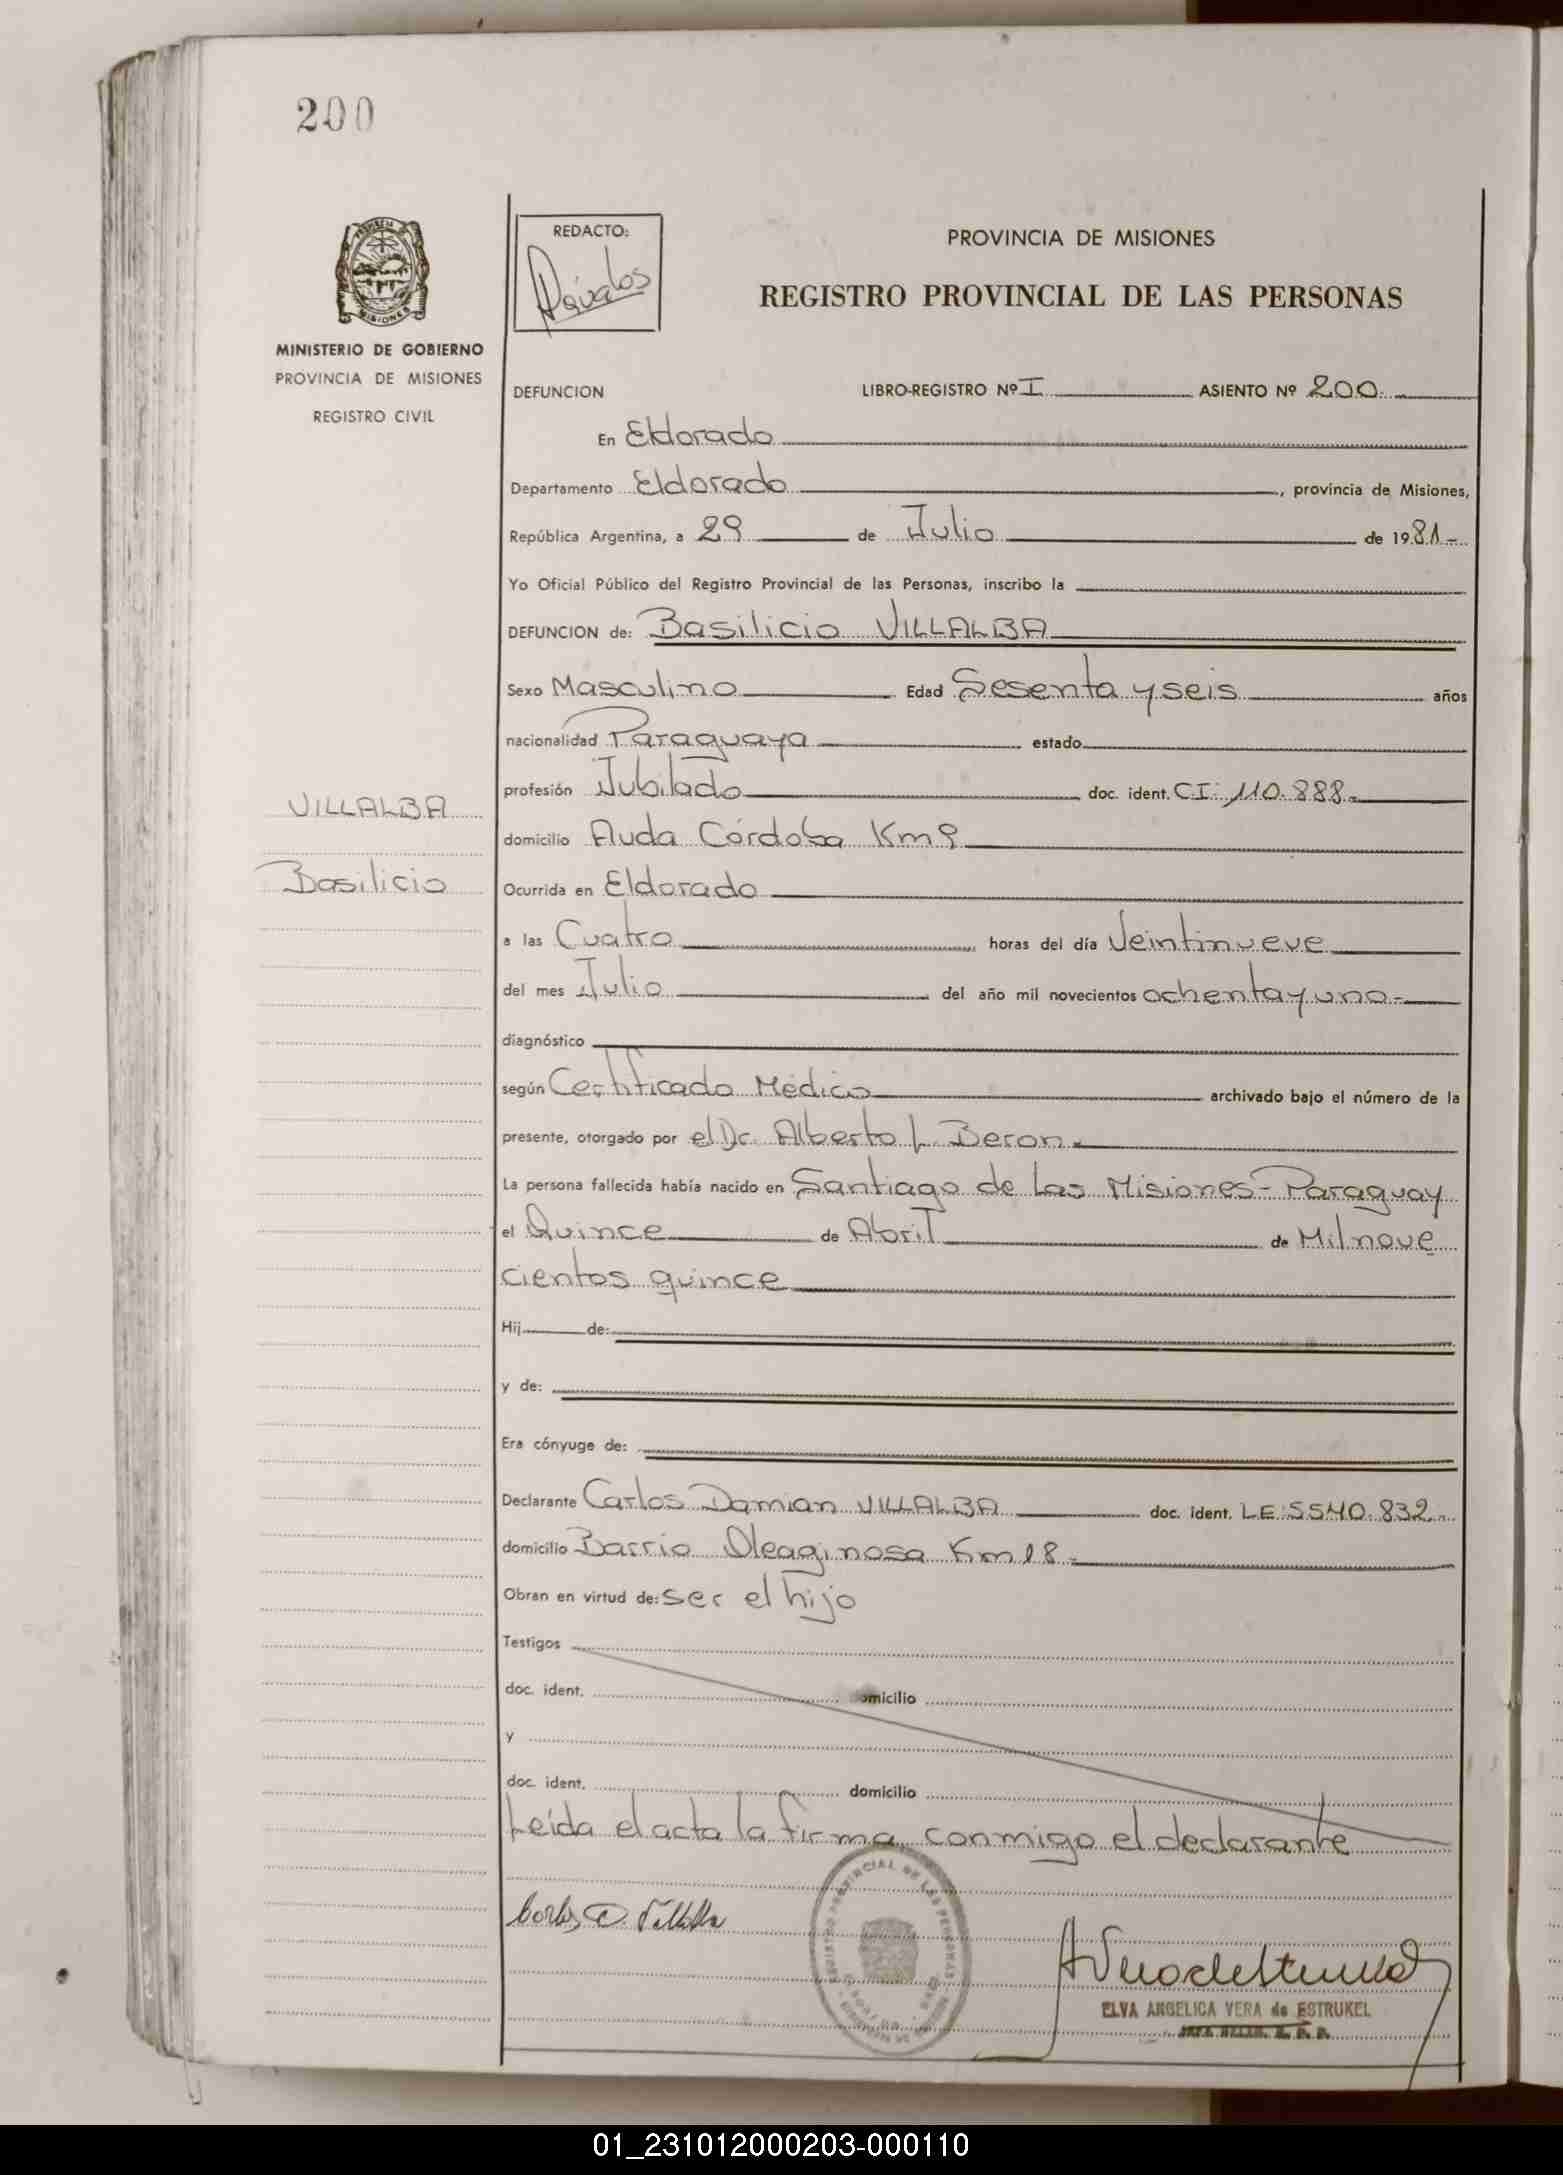 200
REDACTO:
Dávalos
PROVINCIA DE MISIONES
REGISTRO PROVINCIAL DE LAS PERSONAS
MINISTERIO DE GOBIERNO
PROVINCIA DE MISIONES
REGISTRO CIVIL
DEFUNCION LIBRO-REGISTRO Nº I ASIENTO Nº 200.
En Eldorado
Departamento Eldorado, provincia de Misiones,
República Argentina, a 29 de Julio de 1981-
Yo Oficial Público del Registro Provincial de las Personas, inscribo la
DEFUNCION de: Basilicio VILLALBA
Sexo Masculino Edad Sesenta y seis años
nacionalidad Paraguaya estado
profesión Jubilado doc. ident. C.I: 110.888-
VILLALBA
domicilio Avda Córdoba Km 9
Basilicio
Ocurrida en Eldorado
a las Cuatro horas del día Veintinueve
del mes Julio del año mil novecientos ochenta y uno-
diagnóstico
según Certificado Médico archivado bajo el número de la
presente, otorgado por el Dr. Alberto L Beron.
La persona fallecida había nacido en Santiago de Las Misiones- Paraguay
el Quince de Abril de Mil nove
cientos quince
Hij de:
y de:
Era cónyuge de:
Declarante Carlos Damian VILLALBA doc. ident. LE: 5540.832.
domicilio Barrio Oleaginosa Km 18.
Obran en virtud de: ser el hijo
Testigos
doc. ident. omicilio
y
doc. ident. domicilio
Leída el acta la firma conmigo el declarante
Carlos D. Villalba
REGISTRO PROVINCIAL DE LAS PERSONAS
ELVA ANGELICA VERA de ESTRUKEL
01_231012000203-000110